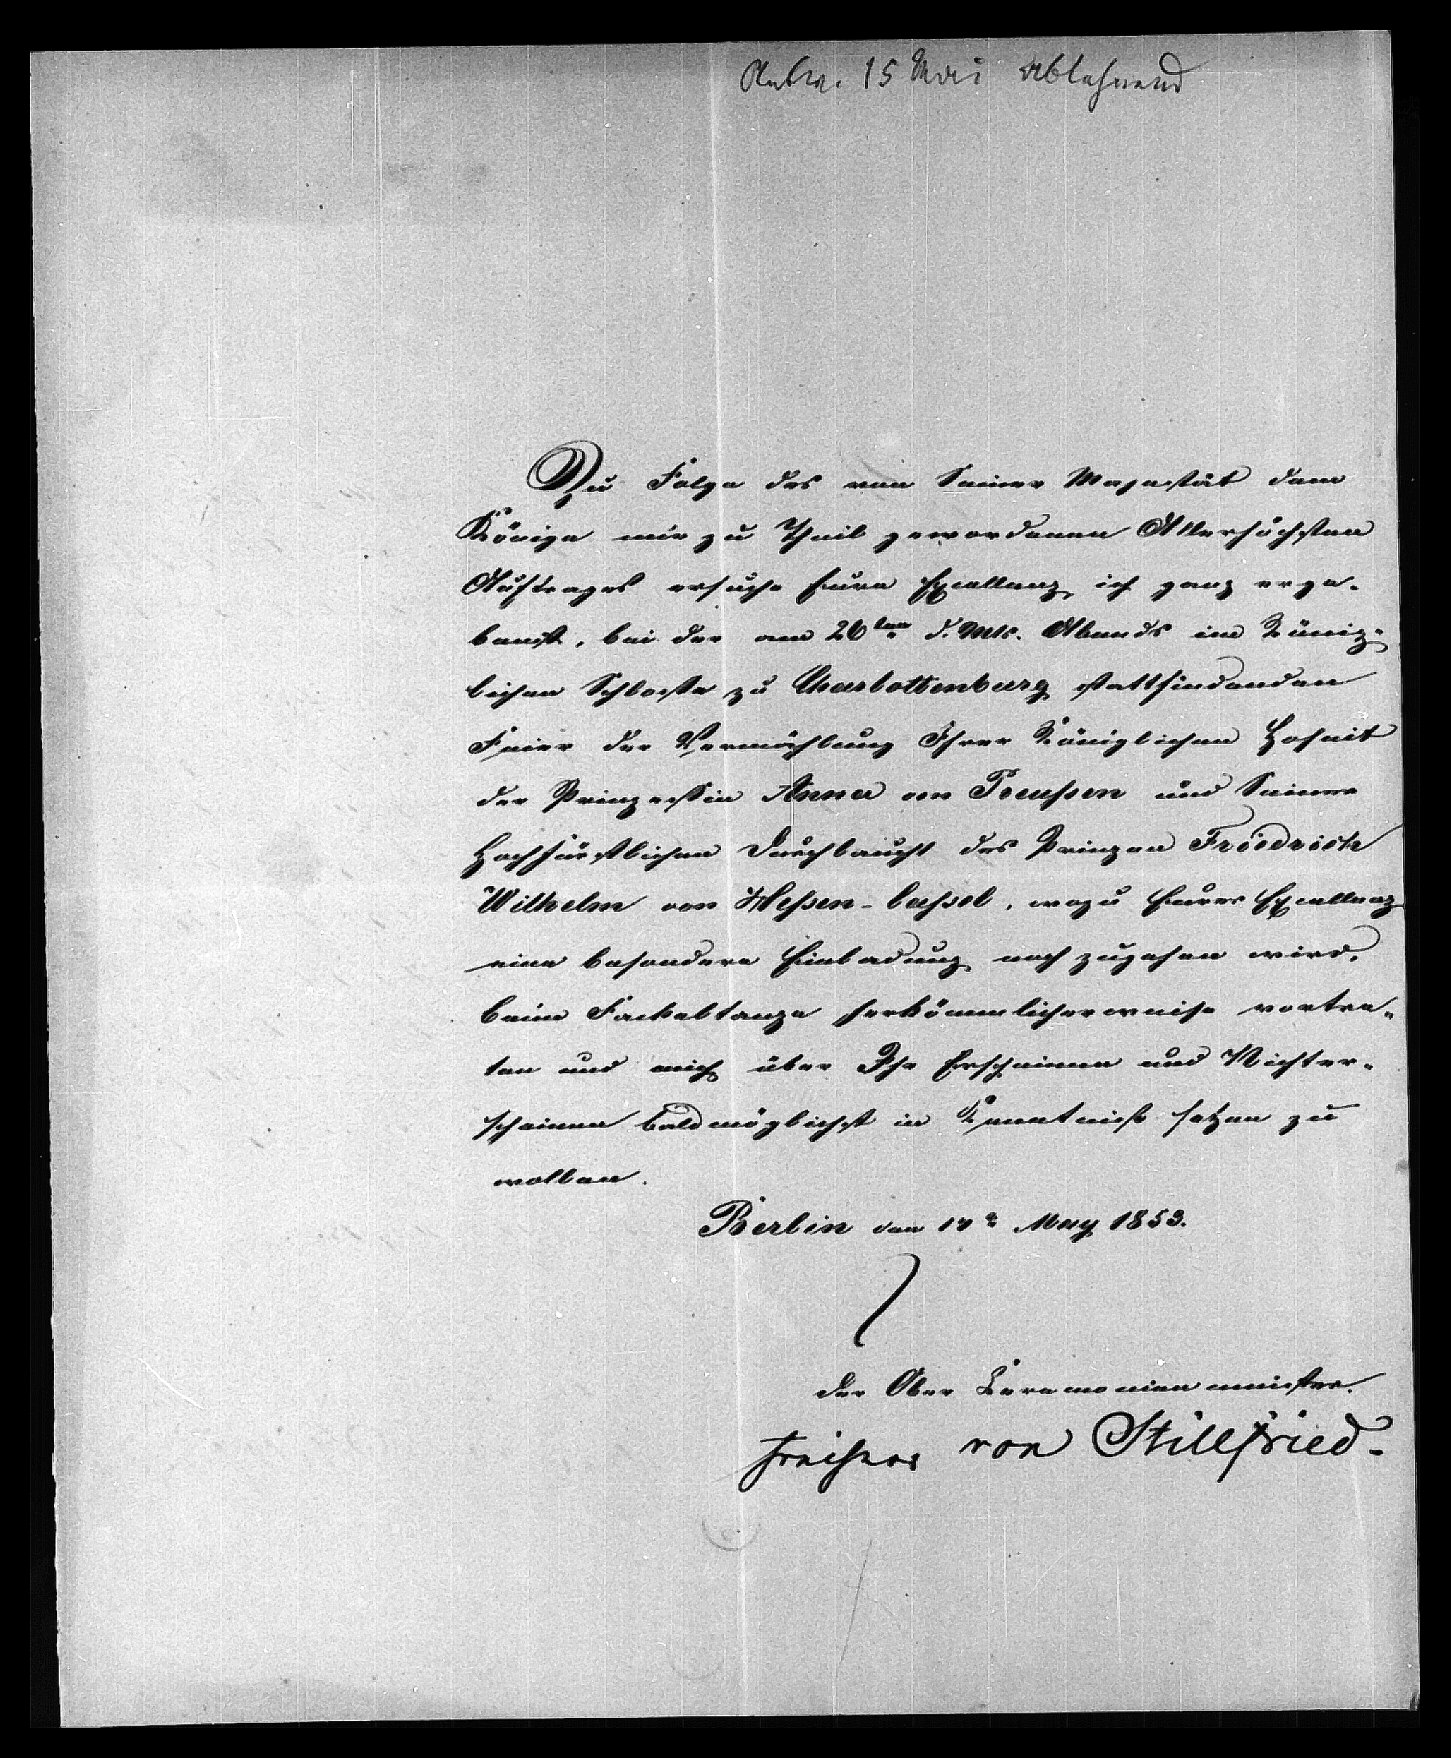 Antw. 15 Mai ablehnend
Zu Folge des von Seiner Majestät dem
Könige mir zu Theil gewordenen Allerhöchsten
Auftrages ersuche Eure Excellenz ich ganz erge-
benst, bei der am 26ten d. Mts. Abends im König-
lichen Schlosse zu Charlottenburg stattfindenden
Feier der Vermählung Ihrer Königlichen Hoheit
der Prinzessin Anna von Preußen und Seiner
Hochfürstlichen Durchlaucht des Prinzen Friedrich
Wilhelm von Hessen-Cassel, wozu Eurer Excellenz
eine besondere Einladung noch zugehen wird,
beim Fackeltanze herkömmlicherweise vortre-
ten und mich über Ihr Erscheinen und Nichter-
scheinen baldmöglichst in Kenntniß setzen zu
wollen.
Berlin den May 1853.
Der Ober Ceremonienmeister.
Freiherr von Stillfried.